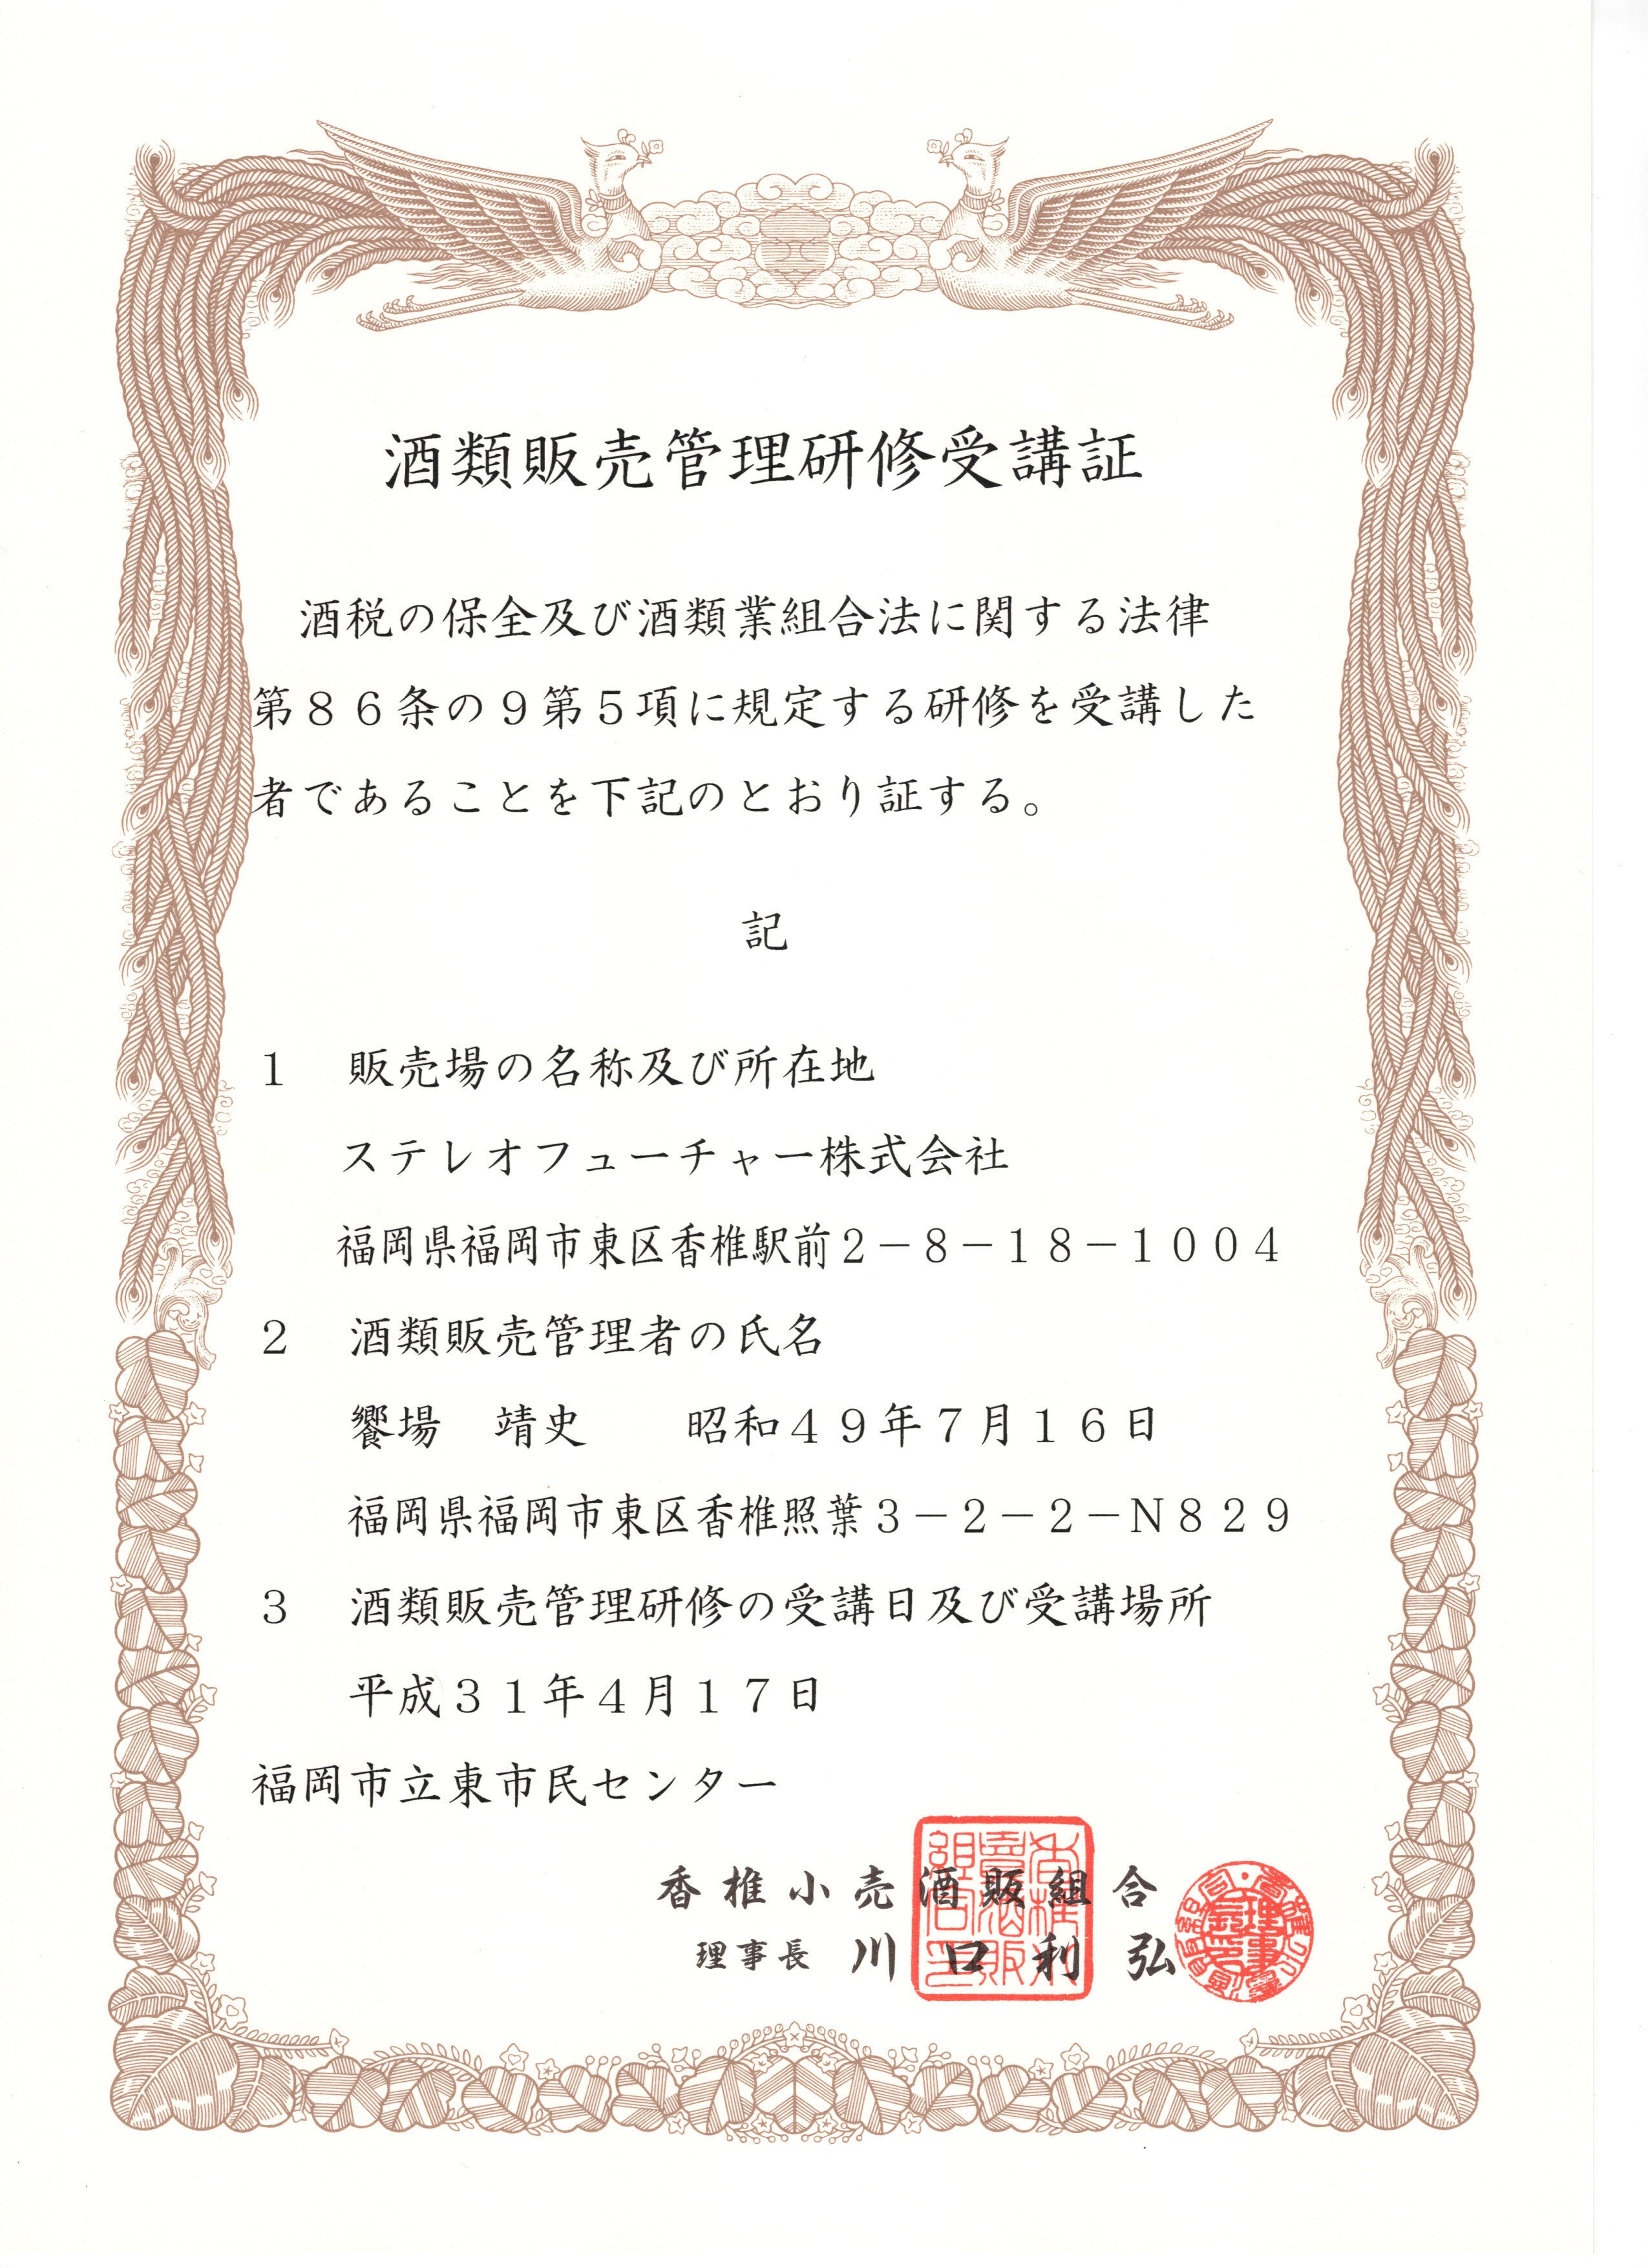 酒類販売管理研修受講証
酒税の保全及び酒類業組合法に関する法律
第８６条の９第５項に規定する研修を受講した
者であることを下記のとおり証する。
記
１　販売場の名称及び所在地
ステレオフューチャー株式会社
福岡県福岡市東区香椎駅前２－８－１８－１００４
２　酒類販売管理者の氏名
饗場　靖史　　昭和４９年７月１６日
福岡県福岡市東区香椎照葉３－２－２－Ｎ８２９
３　酒類販売管理研修の受講日及び受講場所
平成３１年４月１７日
福岡市立東市民センター
香椎小売酒販組合
理事長 川口利弘